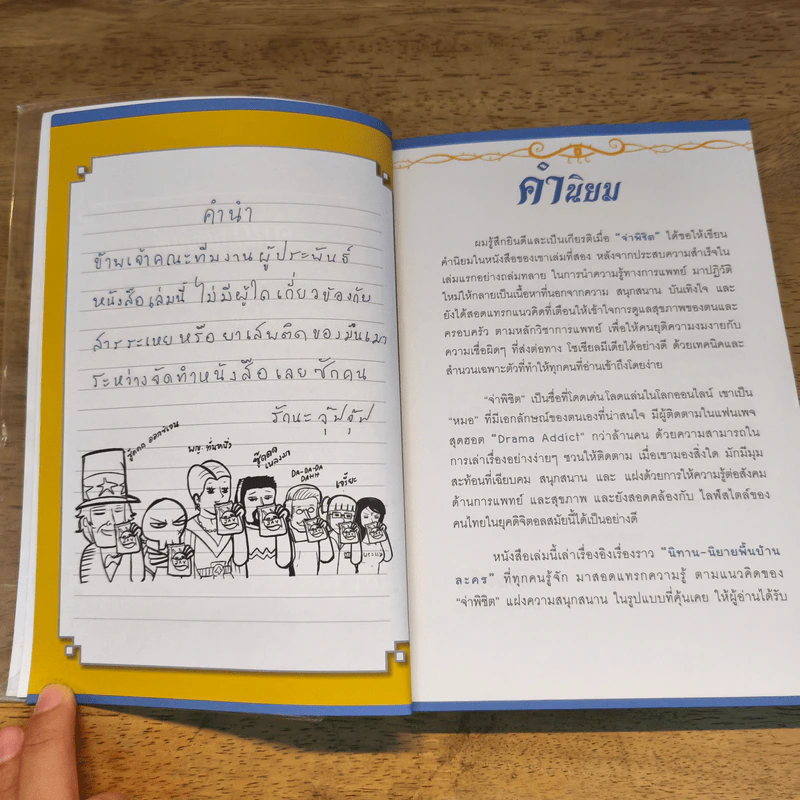 คำนำ
ข้าพเจ้าคณะทีมงานผู้ประพันธ์
หนังสือเล่มนี้ ไม่มีผู้ใดเกี่ยวข้องกับ
สารระเหยหรือยาเสพติดของมึนเมา
ระหว่างจัดทำหนังสือเลยซักคน
รักนะจุ๊ฟจุ๊ฟ
DA-DA-DA
DAHH
คำนิยม
ผมรู้สึกยินดีและเป็นเกียรติเมื่อ "จ่าพิชิต" ได้ขอให้เขียน
คำนิยมในหนังสือของเขาเล่มที่สอง หลังจากประสบความสำเร็จใน
เล่มแรกอย่างถล่มทลาย ในการนำความรู้ทางการแพทย์ มาปฏิวัติ
ใหม่ให้กลายเป็นเนื้อหาที่นอกจากความ สนุกสนาน บันเทิงใจ และ
ยังได้สอดแทรกแนวคิดที่เตือนให้เข้าใจการดูแลสุขภาพของตนและ
ครอบครัว ตามหลักวิชาการแพทย์ เพื่อให้คนยุติความงมงายกับ
ความเชื่อผิดๆ ที่ส่งต่อทาง โซเชียลมีเดียได้อย่างดี ด้วยเทคนิคและ
สำนวนเฉพาะตัวที่ทำให้ทุกคนที่อ่านเข้าถึงโดยง่าย
"จ่าพิชิต" เป็นชื่อที่โดดเด่นโลดแล่นในโลกออนไลน์ เขาเป็น
"หมอ" ที่มีเอกลักษณ์ของตนเองที่น่าสนใจ มีผู้ติดตามในแฟนเพจ
สุดฮอต "Drama Addict" กว่าล้านคน ด้วยความสามารถใน
การเล่าเรื่องอย่างง่ายๆ ชวนให้ติดตาม เมื่อเขามองสิ่งใด มักมีมุม
สะท้อนที่เฉียบคม สนุกสนาน และ แฝงด้วยการให้ความรู้ต่อสังคม
ด้านการแพทย์ และสุขภาพ และยังสอดคล้องกับ ไลฟ์สไตล์ของ
คนไทยในยุคดิจิตอลสมัยนี้ได้เป็นอย่างดี
หนังสือเล่มนี้เล่าเรื่องอิงเรื่องราว "นิทาน-นิยายพื้นบ้าน
ละคร" ที่ทุกคนรู้จัก มาสอดแทรกความรู้ ตามแนวคิดของ
"จ่าพิชิต" แฝงความสนุกสนาน ในรูปแบบที่คุ้นเคย ให้ผู้อ่านได้รับ